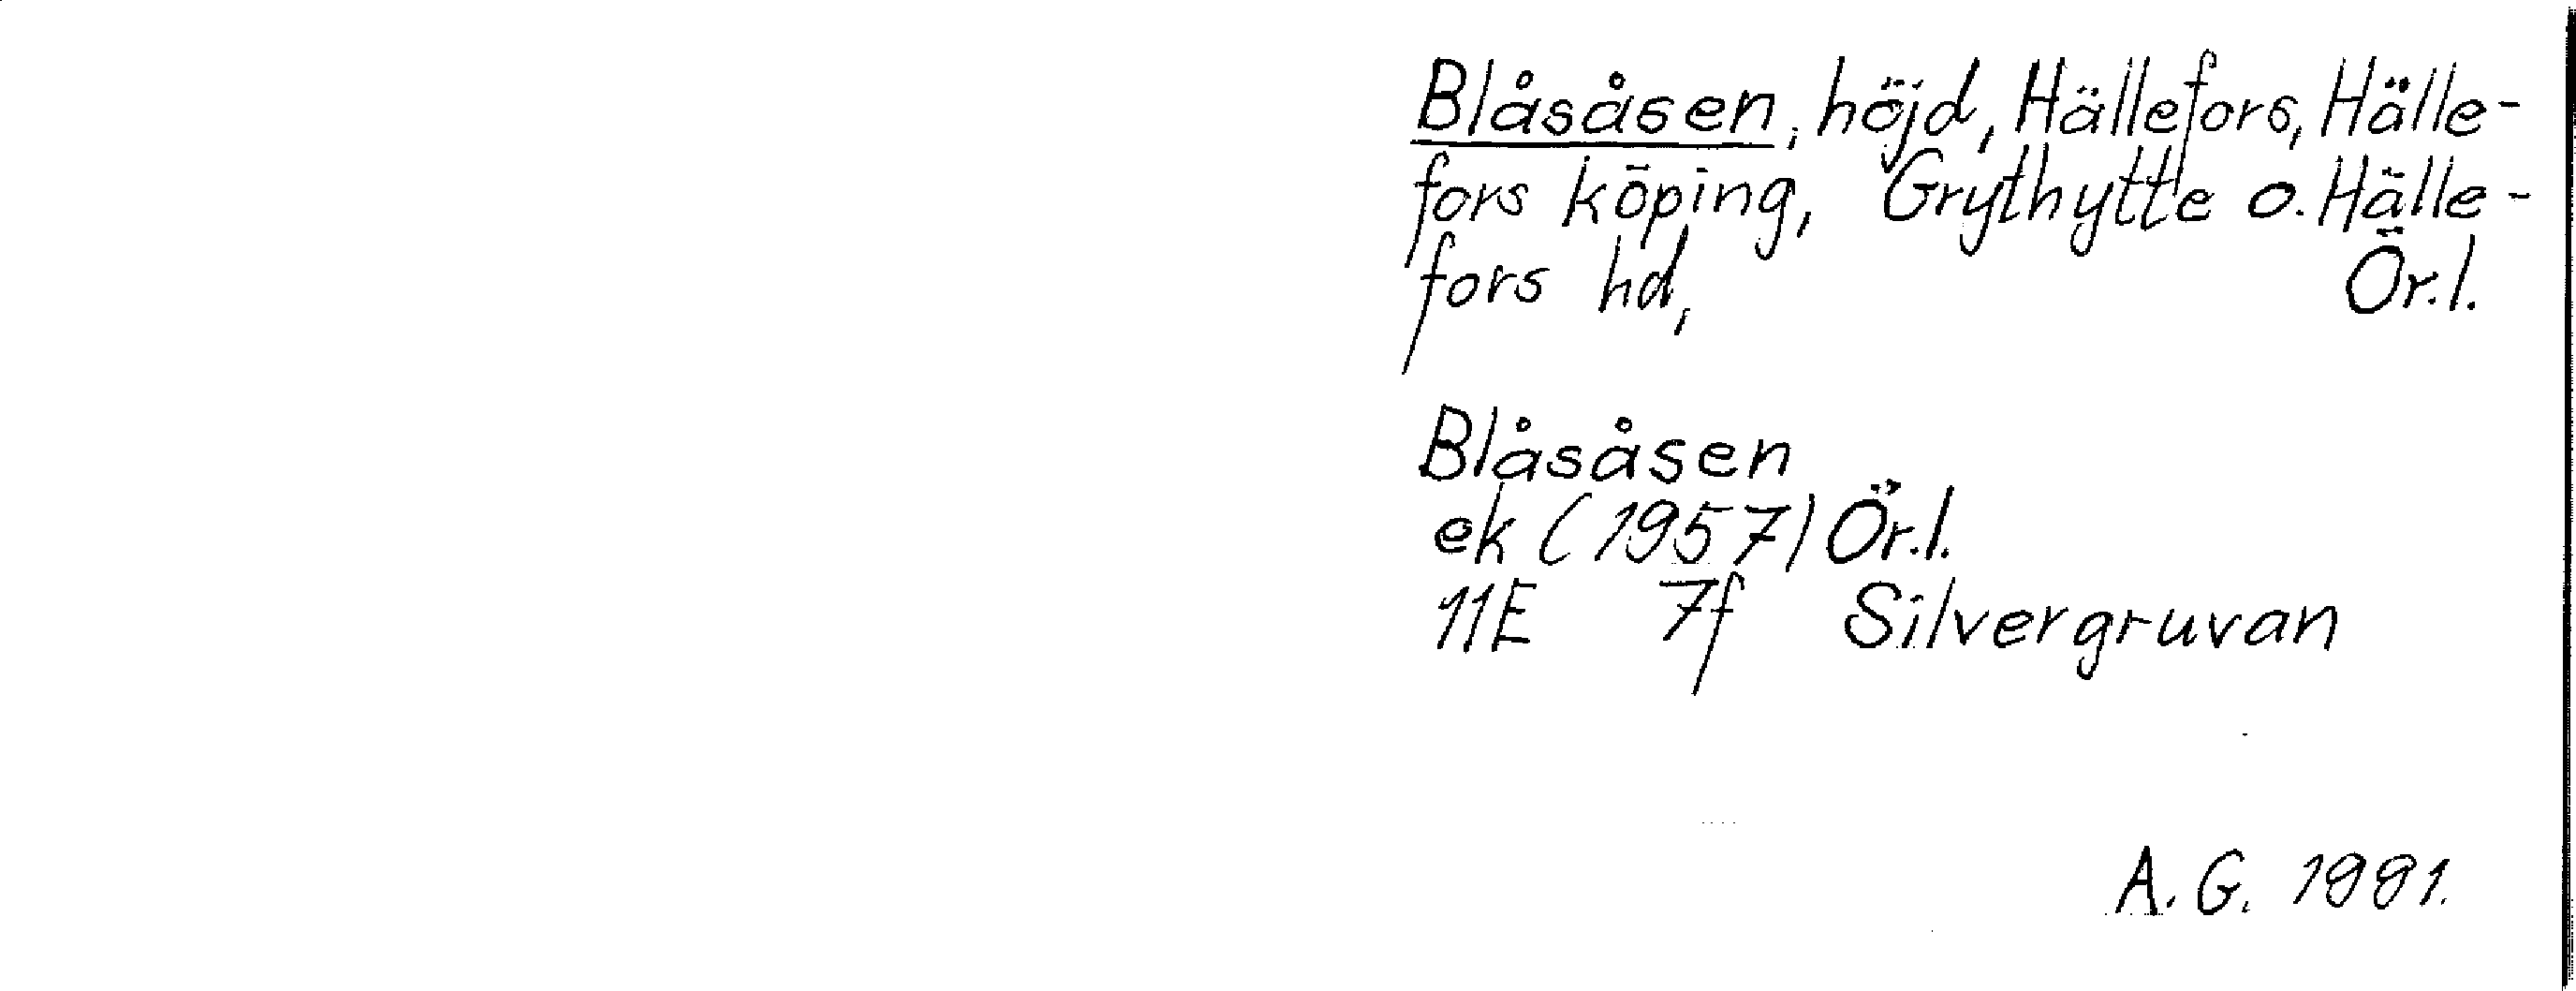 Blåsåsen, höjd, Hällefors, Hälle-
fors köping, Grythytte o. Hälle-
fors hd, Ör.l.
Blåsåsen
ek (1957) Ör.l.
11E 7f Silvergruvan
A.G. 1991.